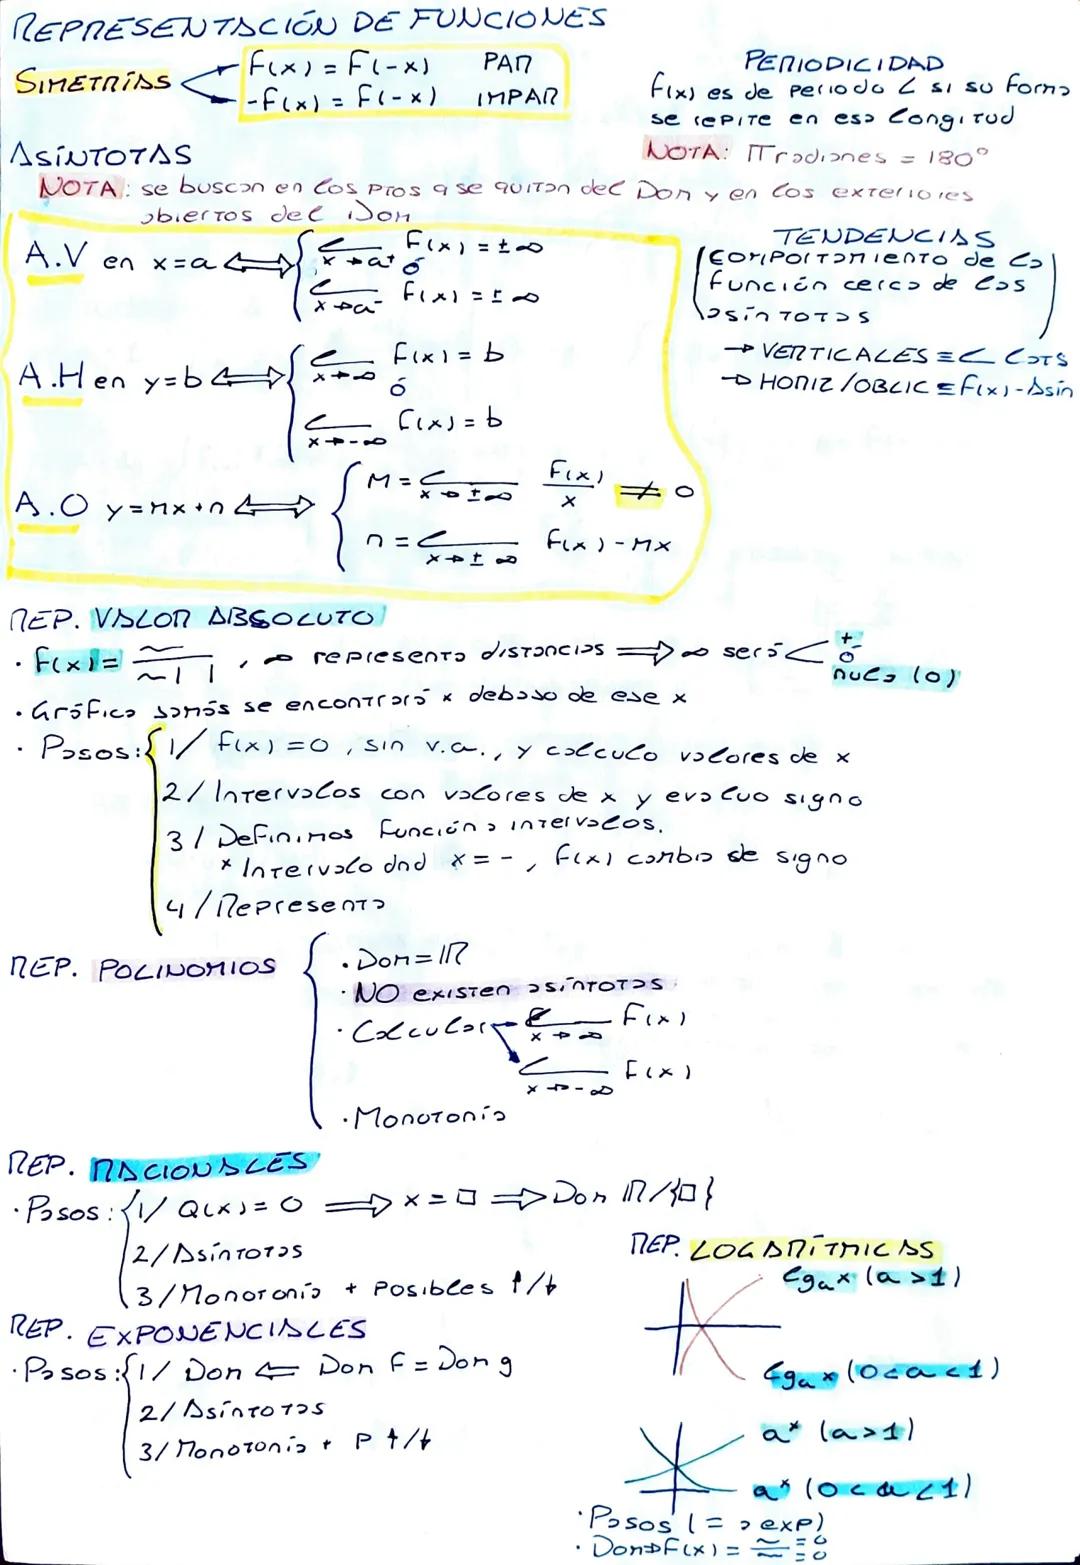 REPRESENTACIÓN DE FUNCIONES
SIMETRÍAS
F(x) = F(-x) PAR
-F(x) = F(-x) IMPAR
PERIODICIDAD
F(x) es de periodo L si su forma
se repite en esa longitud
NOTA: π radianes = 180°
ASÍNTOTAS
NOTA: se buscan en los ptos q se quitan del Dom y en los exteriores
abiertos del Dom
A.V en x=a ⟺ { L x→a⁺ F(x) = ±∞
ó
L x→a⁻ F(x) = ±∞
TENDENCIAS
(comportamiento de la
función cerca de las
asíntotas)
→ VERTICALES ≡ L Lats
→ HORIZ/OBLIC ≡ F(x)-Asín
A.H en y=b ⟺ { L x→∞ F(x) = b
ó
L x→-∞ F(x) = b
A.O y=mx+n ⟺ { M = L x→±∞ F(x)/x ≠ 0
n = L x→±∞ F(x)-Mx
REP. VALOR ABSOLUTO
· F(x)= ~/~| |, ∞ representa distancias ⟹ ∞ será < + ó nula (0)
· Gráfica jamás se encontrará x debajo de ese x
· Pasos: { 1/ F(x)=0, sin v.a., y calculo valores de x
2/ Intervalos con valores de x y evaluo signo
3/ Definimos función a intervalos.
* Intervalo dnd x = -, F(x) cambia de signo
4/ Representa
REP. POLINOMIOS
· Dom = ℝ
· NO existen asíntotas
· Calcular L x→∞ F(x)
L x→-∞ F(x)
· Monotonía
REP. RACIONALES
· Pasos: { 1/ Q(x)=0 ⟹ x=□ ⟹ Dom ℝ/{□}
2/ Asíntotas
3/ Monotonía + posibles ↑/↓
REP. EXPONENCIALES
· Pasos: { 1/ Dom ⟸ Dom F = Dom g
2/ Asíntotas
3/ Monotonía + P ↑/↓
REP. LOGARÍTMICAS
lgₐx (a>1)
lgₐx (0<a<1)
aˣ (a>1)
aˣ (0<a<1)
· Pasos (= a exp)